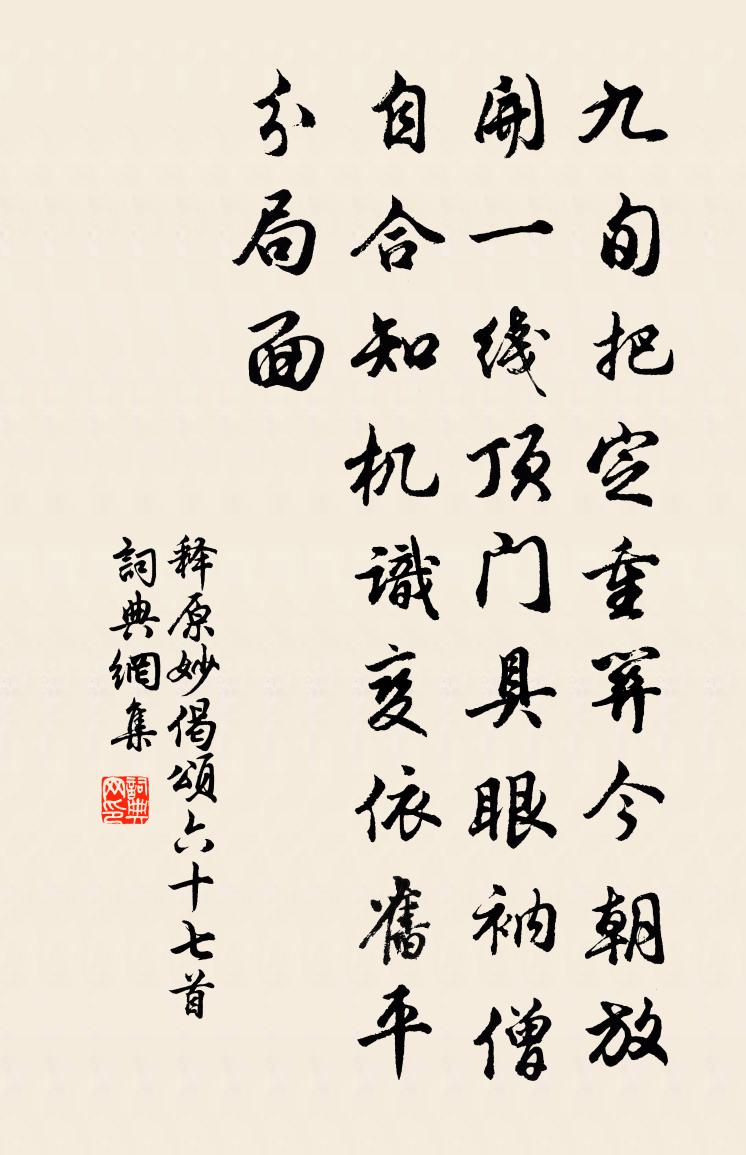 九旬把定重関今朝放
開一綫顶门具眼衲僧
自合知机識变依舊平
分局面
释原妙偈頌六十七首
詞典網集
詞典网印